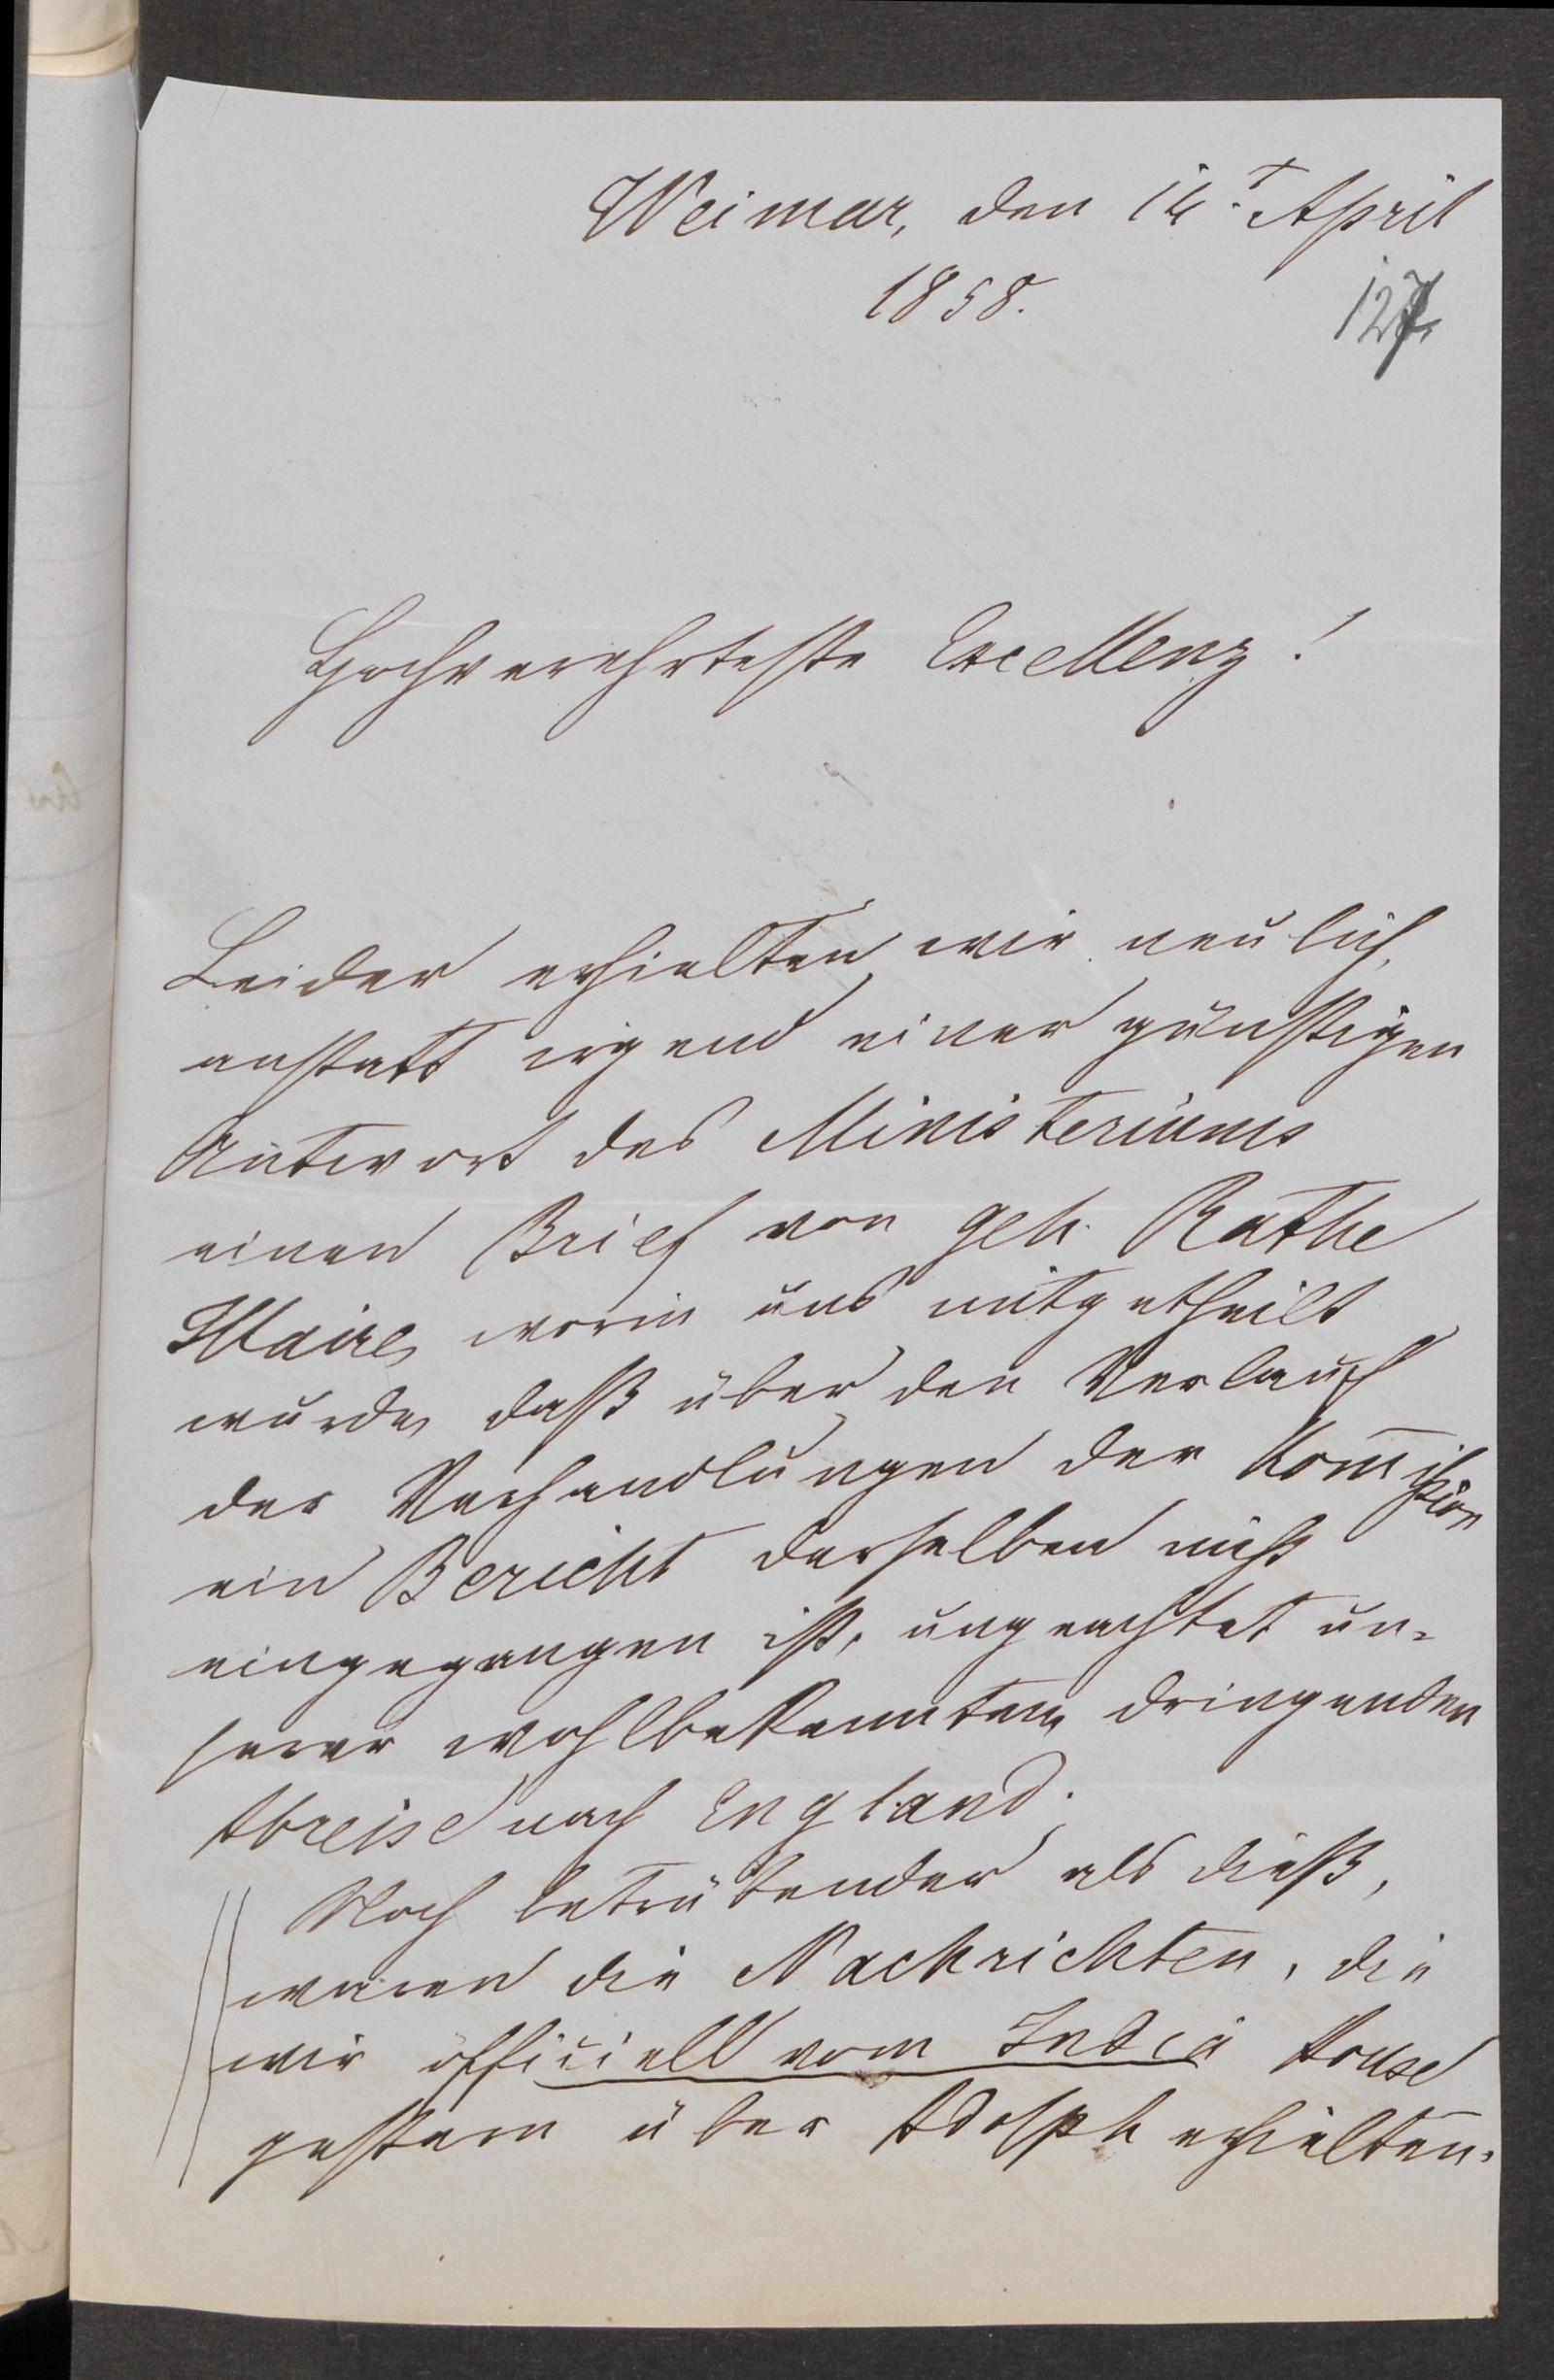 Weimar, den 14. April
1858.
127
Hochverehrteste Excellenz!
Leider erhielten wir neulich,
anstatt irgend einer günstigen
Antwort des Ministeriums
einen Brief von Geh. Rathe
Illaire, worin uns mitgetheilt
wurde, daß über den Verlauf
der Verhandlungen der Kom̄ißion
ein Bericht derselben nicht
eingegangen ist, ungeachtet un-
serer wohlbekannten, dringenden
Abreise nach England.
Noch betrübender als dieß,
waren die Nachrichten, die
wir officiell vom India House
gestern über Adolph erhielten.